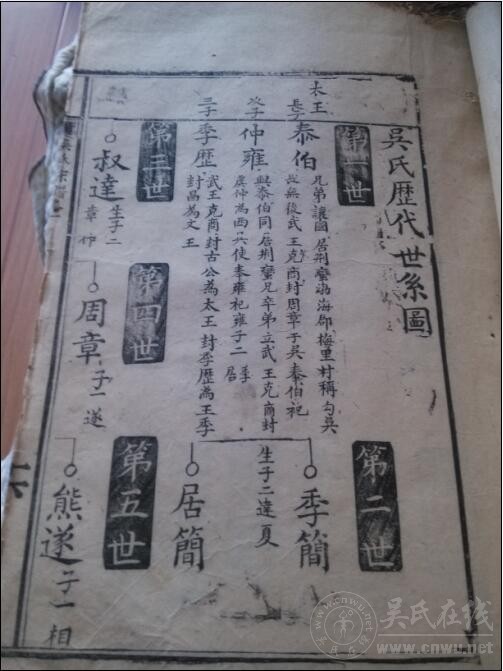 吳氏歴代世系圖
第一世
太王
長子
泰伯
兄弟讓國居荆蠻渤海郡梅里村稱勾吳
故無後武王克商封周章于吳泰伯祀
次子
仲雍
與泰伯同居荆蠻兄卒弟立武王克商封
虞仲為西吳使奉雍祀雍子二季居
三子
季歴
武王克商封古公為太王封季歴為王季
封昌為文王
第二世
季簡
生子二達夏
居簡
第三世
叔達
生子二
章仲
第四世
周章
子一遂
第五世
熊遂
子一相
吴氏在线
www.cnwu.net